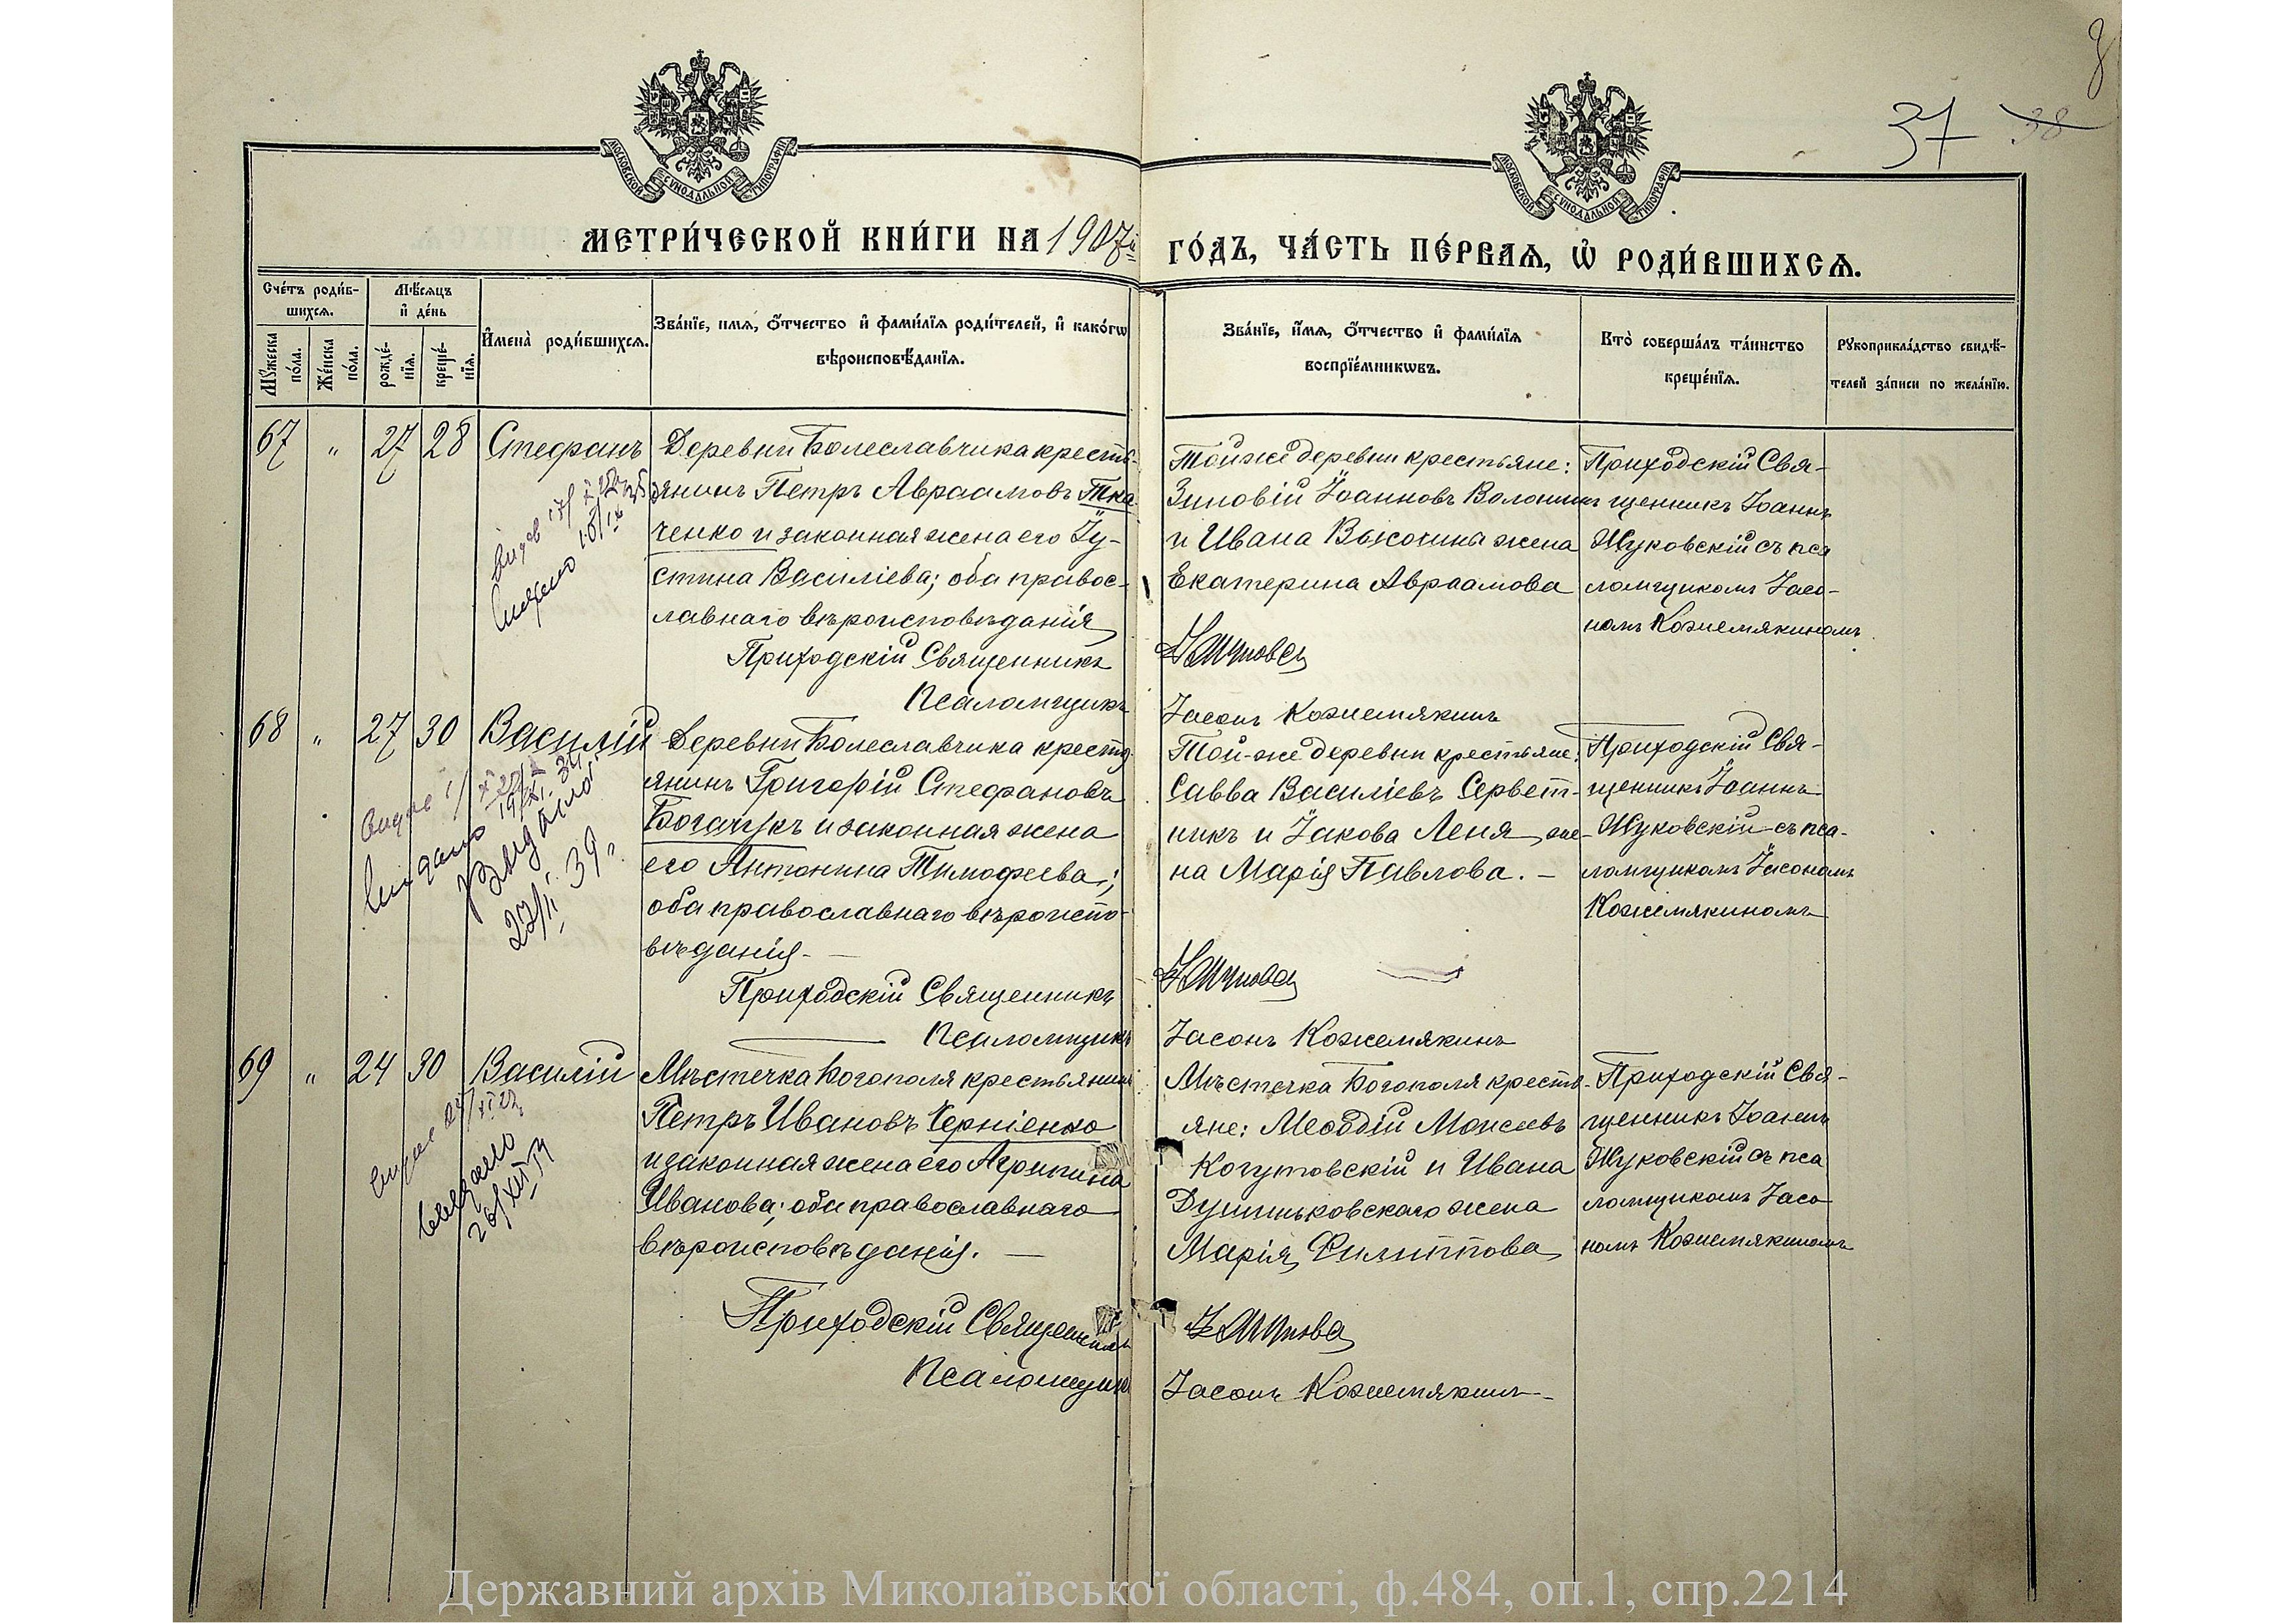 37 38
МОСКОВСКОЙ СѴНОДАЛЬНОЙ ТИПОГРАФІИ
МОСКОВСКОЙ СѴНОДАЛЬНОЙ ТИПОГРАФІИ
МЕТРИ́ЧЕСКОЙ КНИ́ГИ НА 1907й
ГО́ДЪ, ЧА́СТЬ ПЕ́РВАѦ, Ѡ҆ РОДИ́ВШИХСѦ.
Сче́тъ роди́в-
шихсѧ.
Мꙋ́жеска
по́ла.
Же́нска
по́ла.
Мѣ́сѧцъ
и҆ де́нь
рожде́-
нїѧ.
креще́-
нїѧ.
И҆мена̀ роди́вшихсѧ.
Зва́нїе, и҆́мѧ, ѻ҆́тчество и҆ фами́лїѧ роди́телей, и҆ како́гѡ
вѣроисповѣ́данїѧ.
Зва́нїе, и҆́мѧ, ѻ҆́тчество и҆ фами́лїѧ
воспрїе́мникѡвъ.
Кто̀ соверша́лъ та́инство
креще́нїѧ.
Рꙋкоприкла́дство свидѣ́-
телей за́писи по жела́нїю.
67 " 27 28 Стефанъ
Деревни Болеславчика кресть-
янинъ Петръ Авраамовъ Тка-
ченко и законная жена его Іу-
стина Василіева; оба правос-
лавнаго вѣроисповѣданія
Приходскій Священникъ
Псаломщикъ
Той же деревни крестьяне:
Зиновій Іоанновъ
и Ивана жена
Екатерина Авраамова
Іасонъ Кожемякинъ
Приходскій Свя-
щенникъ Іоаннъ
Жуковскій съ пса
ломщикомъ Іасо-
номъ Кожемякиномъ
68 " 27 30 Василій
Выдано
27/II 39.
Деревни Болеславчика кресть
янинъ Григорій Стефановъ
Богачукъ и законная жена
его Антонина Тимофеева;
оба православнаго вѣроиспо-
вѣданія.
Приходскій Священникъ
Псаломщикъ
Той-же деревни крестьяне:
Савва Василіевъ Сервет-
никъ и Іакова Леня же-
на Марія Павлова. –
Іасонъ Кожемякинъ
Приходскій Свя-
щенникъ Іоаннъ
Жуковскій съ пса-
ломщикомъ Іасономъ
Кожемякиномъ
69 " 24 30 Василій
Мѣстечка Богополя крестьянинъ
Петръ Ивановъ Черніенко
и законная жена его Агрипина
Иванова; оба православнаго
вѣроисповѣданія. —
Приходскій Священникъ
Псаломщикъ
Мѣстечка Богополя кресть-
яне: Меѳодій Моисеевъ
Когутовскій и Ивана
жена
Марія Филиппова
Іасонъ Кожемякинъ
Приходскій Свя-
щенникъ Іоаннъ
Жуковскій съ пса
ломщикомъ Іасо
номъ Кожемякиномъ
Державний архів Миколаївської області, ф.484, оп.1, спр.2214